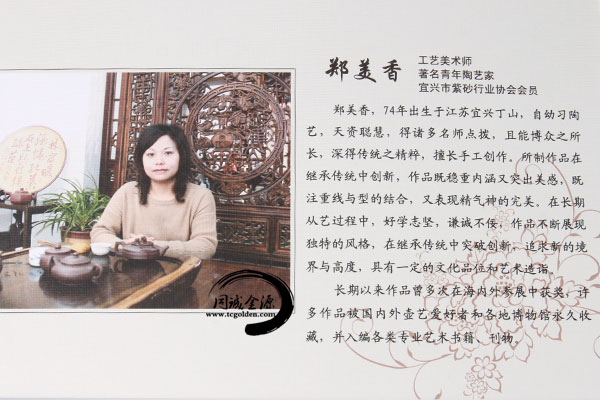 郑美香
工艺美术师
著名青年陶艺家
宜兴市紫砂行业协会会员
郑美香，74年出生于江苏宜兴丁山，自幼习陶
艺，天资聪慧，得诸多名师点拨，且能博众之所
长，深得传统之精粹，擅长手工创作。所制作品在
继承传统中创新，作品既稳重内涵又突出美感，既
注重线与型的结合，又表现精气神的完美。在长期
从艺过程中，好学志坚，谦诚不佞，作品不断展现
独特的风格，在继承传统中突破创新，追求新的境
界与高度，具有一定的文化品位和艺术造诣。
长期以来作品曾多次在海内外参展中获奖，许
多作品被国内外壶艺爱好者和各地博物馆永久收
藏，并入编各类专业艺术书籍、刊物。
同诚金源
www.tcgolden.com